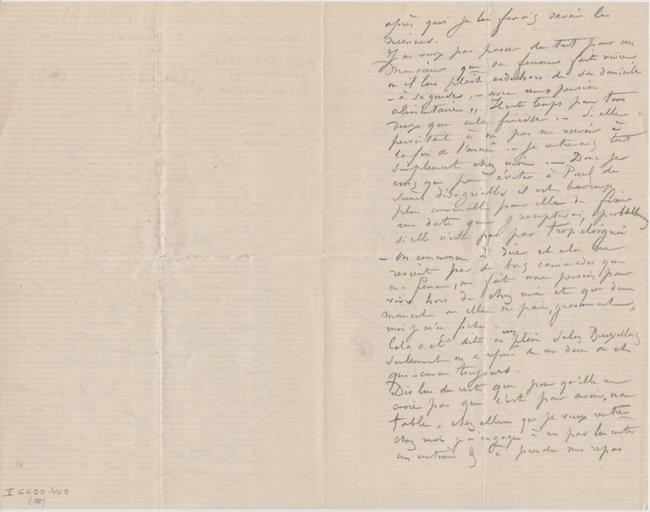 après quoi je lui ferais savoir les
miennes.
Je ne veux pas passer du tout pour un
Monsieur que sa femme fait vivre
où il lui plaît en dehors de son domicile
- à sa guise, - avec une pension
alimentaire, Il est temps pour tous
deux que cela finisse. - Si elle
persistait à ne pas me recevoir à
la fin de l'année - je rentrerais tout
simplement chez moi. - Donc je
crois que pour éviter à Paul des
scènes désagréables il est beaucoup
plus convenable pour elle de fixer
une date que j'accepterai, probablement
si elle n'est pas par trop éloignée
- On commence à dire et cela me
revient par de bons camarades que
ma femme, me fait une pension pour
vivre hors de chez moi et que du
moment où elle me paie, grassement,
moi je m'en fiche
Cela a été dit en plein salon Bruxellois
seulement on a refusé de me dire où et
qui - comme toujours.
Dis lui du reste que pour qu'elle ne
croie pas que c'est pour avoir, ma
table, chez elle que je veux rentrer
chez moi je m'engage à ne pas lui coûter
un centime & à prendre mes repas
II 6655/469
(70)